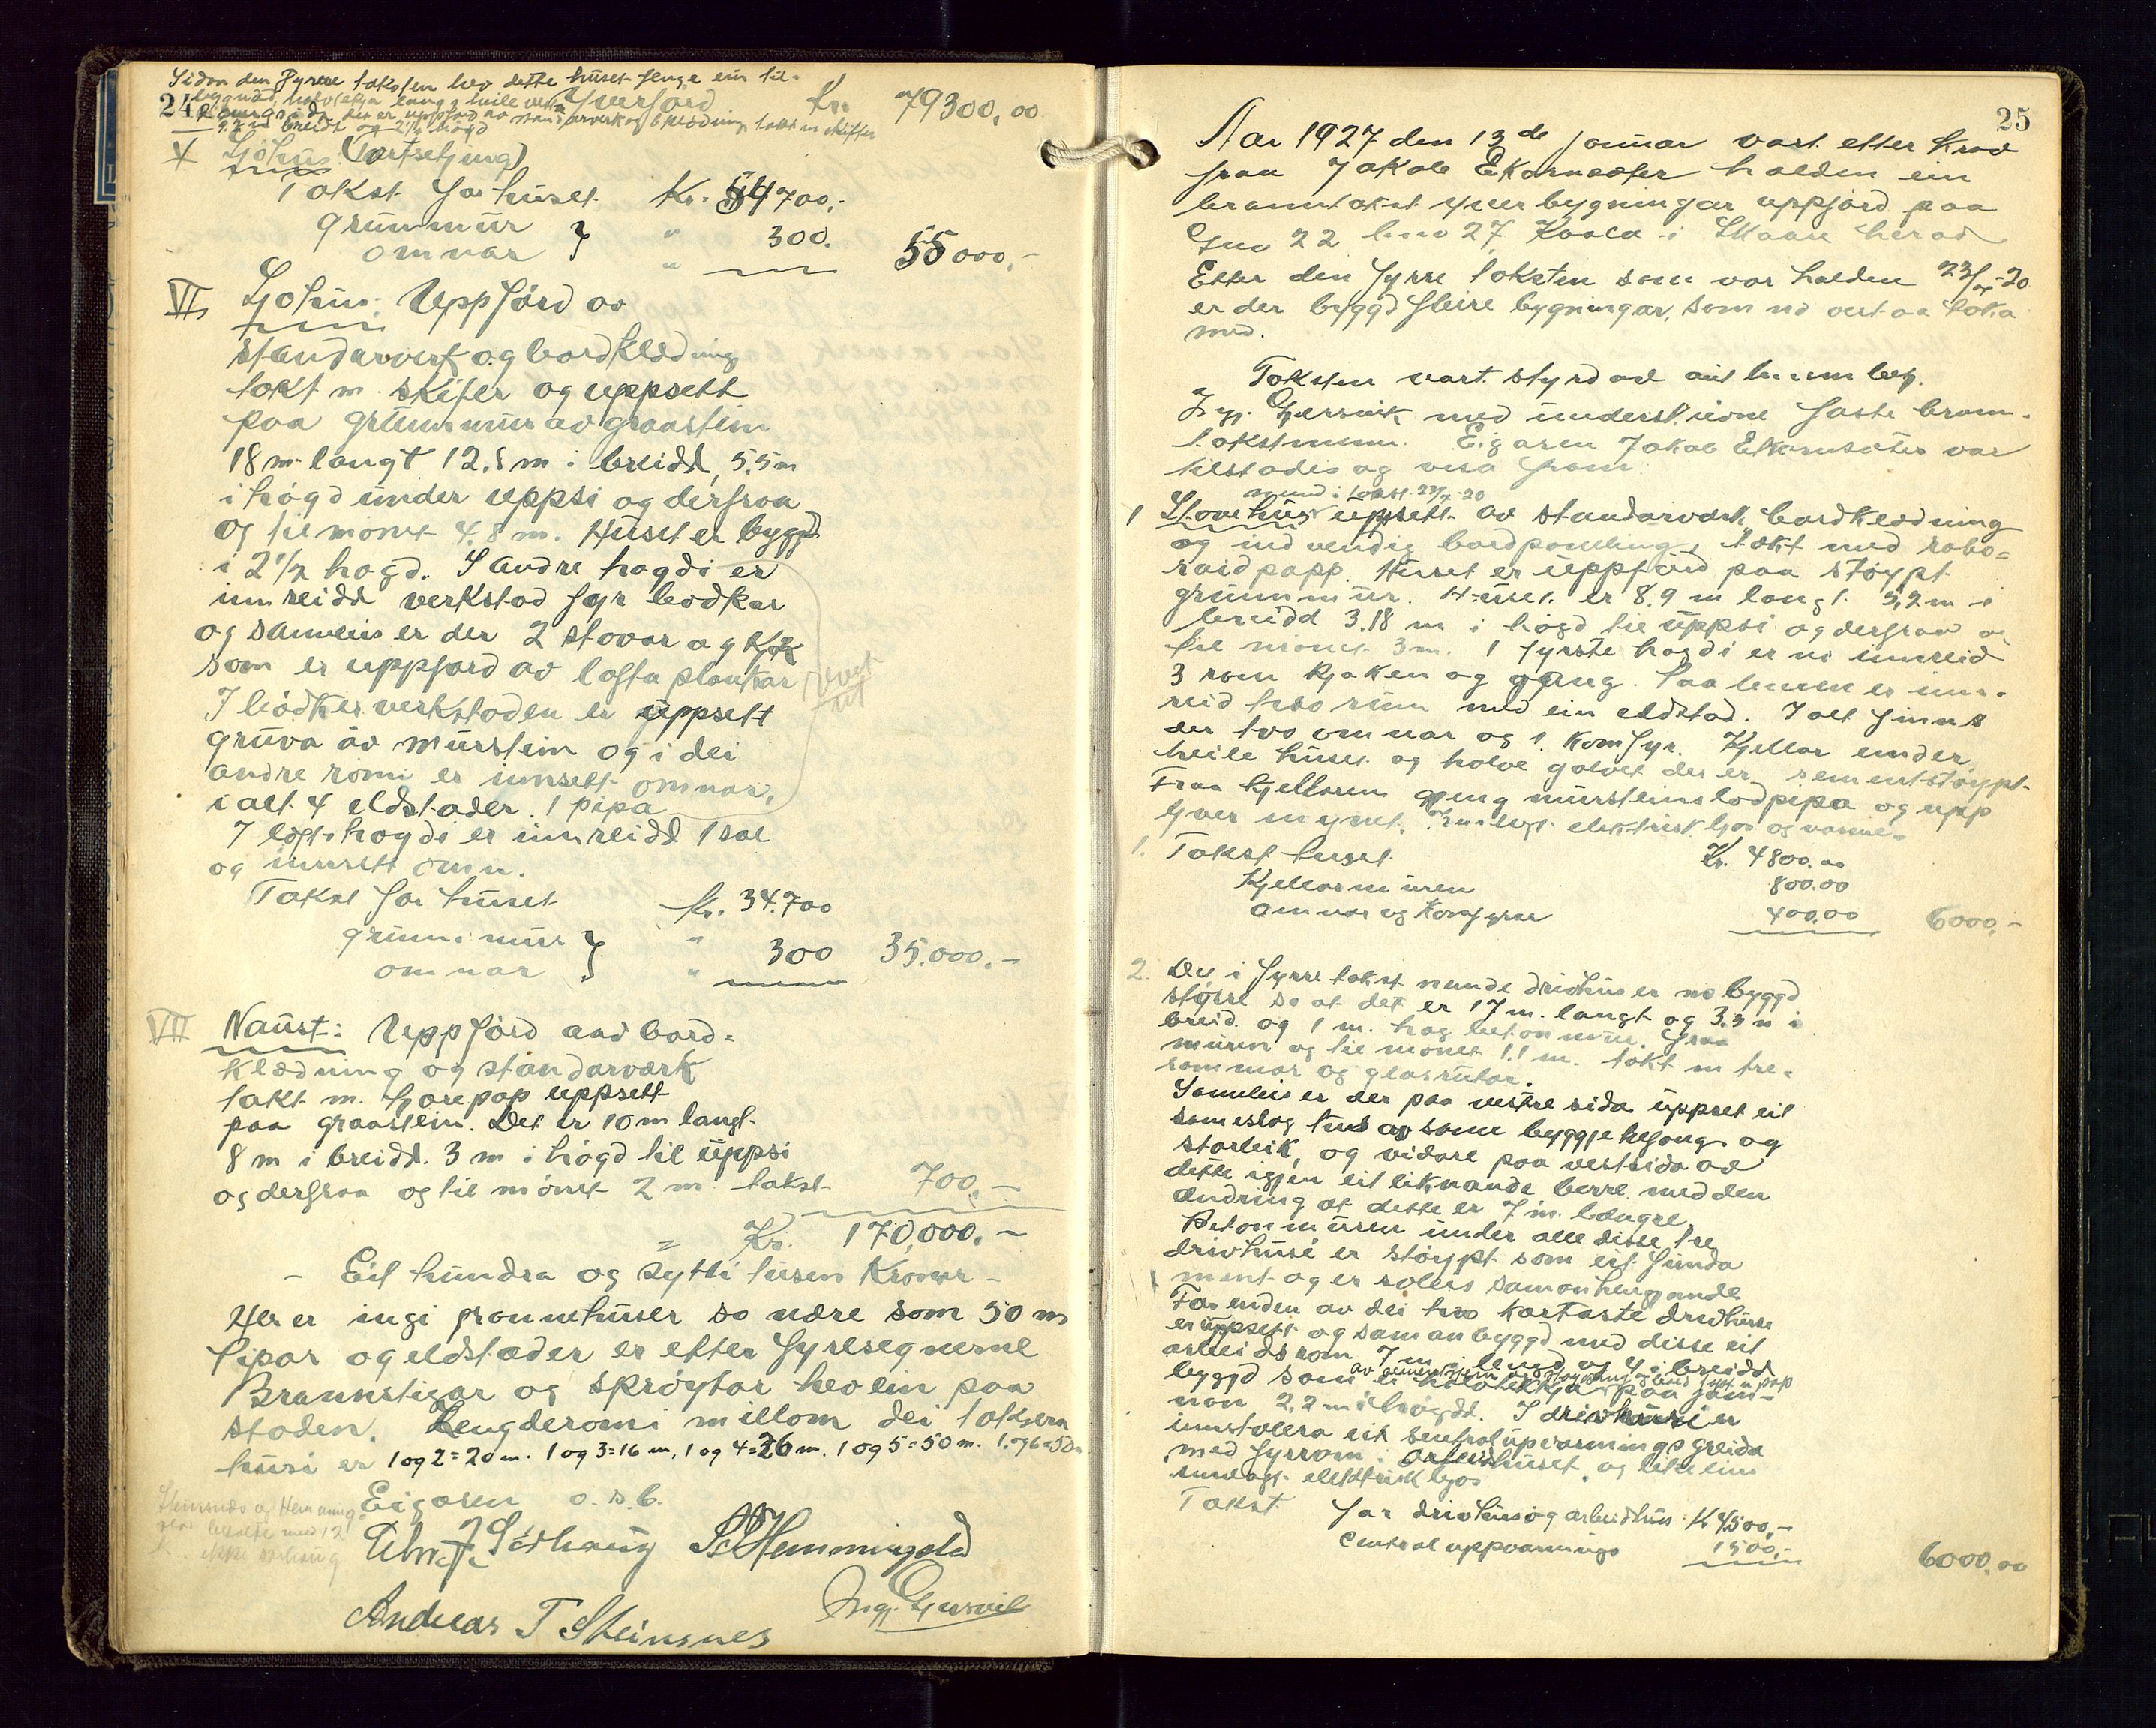 Sidan den fyrre taksten hev dette huset fenge ein til-
24
Yverförd Kr. 79300,00
V Sjöhus (Fortsetjing)
Takst for huset Kr. 54700,-
grunnmur } " 300.
omnar " 55000,-
VI Sjöhus: Uppförd av
standarverk og bordklædning
takt m. skifer og uppsett
paa grunnmur av graastein
18 m langt 12,5 m i breidd, 5,5 m
i högd under uppsi og derfraa
og til mönet 4,8 m. Huset er bygd
i 2 1/2 högd. I andre högdi er
innreidd verkstad fyr bödkar
og sameleis er der 2 stovar og kjök
som er uppförd av lafta plankar
I bödkerverkstaden er uppsett
gruva av murstein og i dei
andre romi er innsett omnar,
i alt 4 eldstader. 1 pipa
I loftshögdi er innreidd 1 sal
og innsett omn.
Takst for huset Kr. 34.700
grunnmur } " 300 35.000.-
omnar "
VII Naust: Uppförd av bord-
klædning og standarverk
takt m. tjorepap uppsett
paa graastein. Det er 10 m langt
8 m i breidd. 3 m i högd til uppsi
og derfraa og til mönet 2 m. takst 700.-
= Kr. 170,000.-
- Eit hundra og sytti tusen Kronor -
Her er ingi grannehuser so nære som 50 m
Pipor og eldstader er etter fyresegnerne
Brannstigar og spröytor hev ein paa
staden. Lengderomi millom dei taksera
husi er 1 og 2 = 20 m. 1 og 3 = 16 m, 1 og 4 = 26 m. 1 og 5 = 50 m. 1 og 6 = 50 m
Eigaren o.s.b.
Hemmingstad
Andreas T Steinsnes
Ingj. Gjersvik
25
Aar 1927 den 13de januar vart etter krav
fraa Jakob Ekornsæter halden ein
branntakst yver bygningar uppförd paa
Gno 22 bno 27 i Skaare herad
Etter den fyrre taksten som var halden 23/ -20
er der byggd fleire bygningar, som no vert aa taka
med.
Taksten vart styrd av
Ingj. Gjersvik med underskrivne faste brann-
takstmenn. Eigaren Jakob Ekornsæter var
tilstades og visa fram:
nemnd i takst 23/ -20
1 Stovehus uppsett av standarverk bordklædning
og indvendig bordpaneling, tækt med rabo-
raidpapp. Huset er uppförd paa stöypt
grunnmur. Huset er 8,9 m langt 5,2 m i
breidd 3,18 m i högd til uppsi og derfraa og
til mönet 3 m. I fyrste högdi er ni innreid
3 rom kjöken og gang. Paa lemen er inn-
reid two rum med ein eldstad. I alt finns
der two omnar og 1 Komfyr. Kjellar under
heile huset og halve golvet der er sementstöypt
Fraa kjellaren geng mursteinslodpipa og upp
yver mynet. innlagt elektrisk ljos og varme.
1. Takst huset Kr. 4800.00
Kjellarmuren 800.00
omnar og Komfyrar 400.00 6000,-
2. Det i fyrre takst nemnde drivhus er no byggd
större so at det er 17 m. langt og 3.3 m i
breid. og 1 m. hög betonmur. fraa
muren og til mönet 1.1 m. takt m tre-
rammor og glasrutor.
Sameleis er der paa vestre sida uppset eit
sameslag hus av same byggjehefong og
storleik, og vidare paa vestsida av
dette igjen eit liknande berre med den
endring at dette er 7 m. længre.
Betonmuren under alle disse tre
drivhusi er stöypt som eit funda
ment og er soleis samanhengjande
For enden av dei two kortaste drivhusa
er uppsett og saman byggd med disse eit
arbeidsrom 7 m i lengd og 4 i breidd
byggd som ei halvtekkja paa
non 2,2 m i högdd. I drivhusi er
innstalera eit sentralupvarmings greida
med fyrrom i arbeidshuset, og likeeins
innlagt elektrisk ljos
Takst for drivhus og arbeidhus Kr 4500,-
Central uppvarmings 1500,- 6000.00